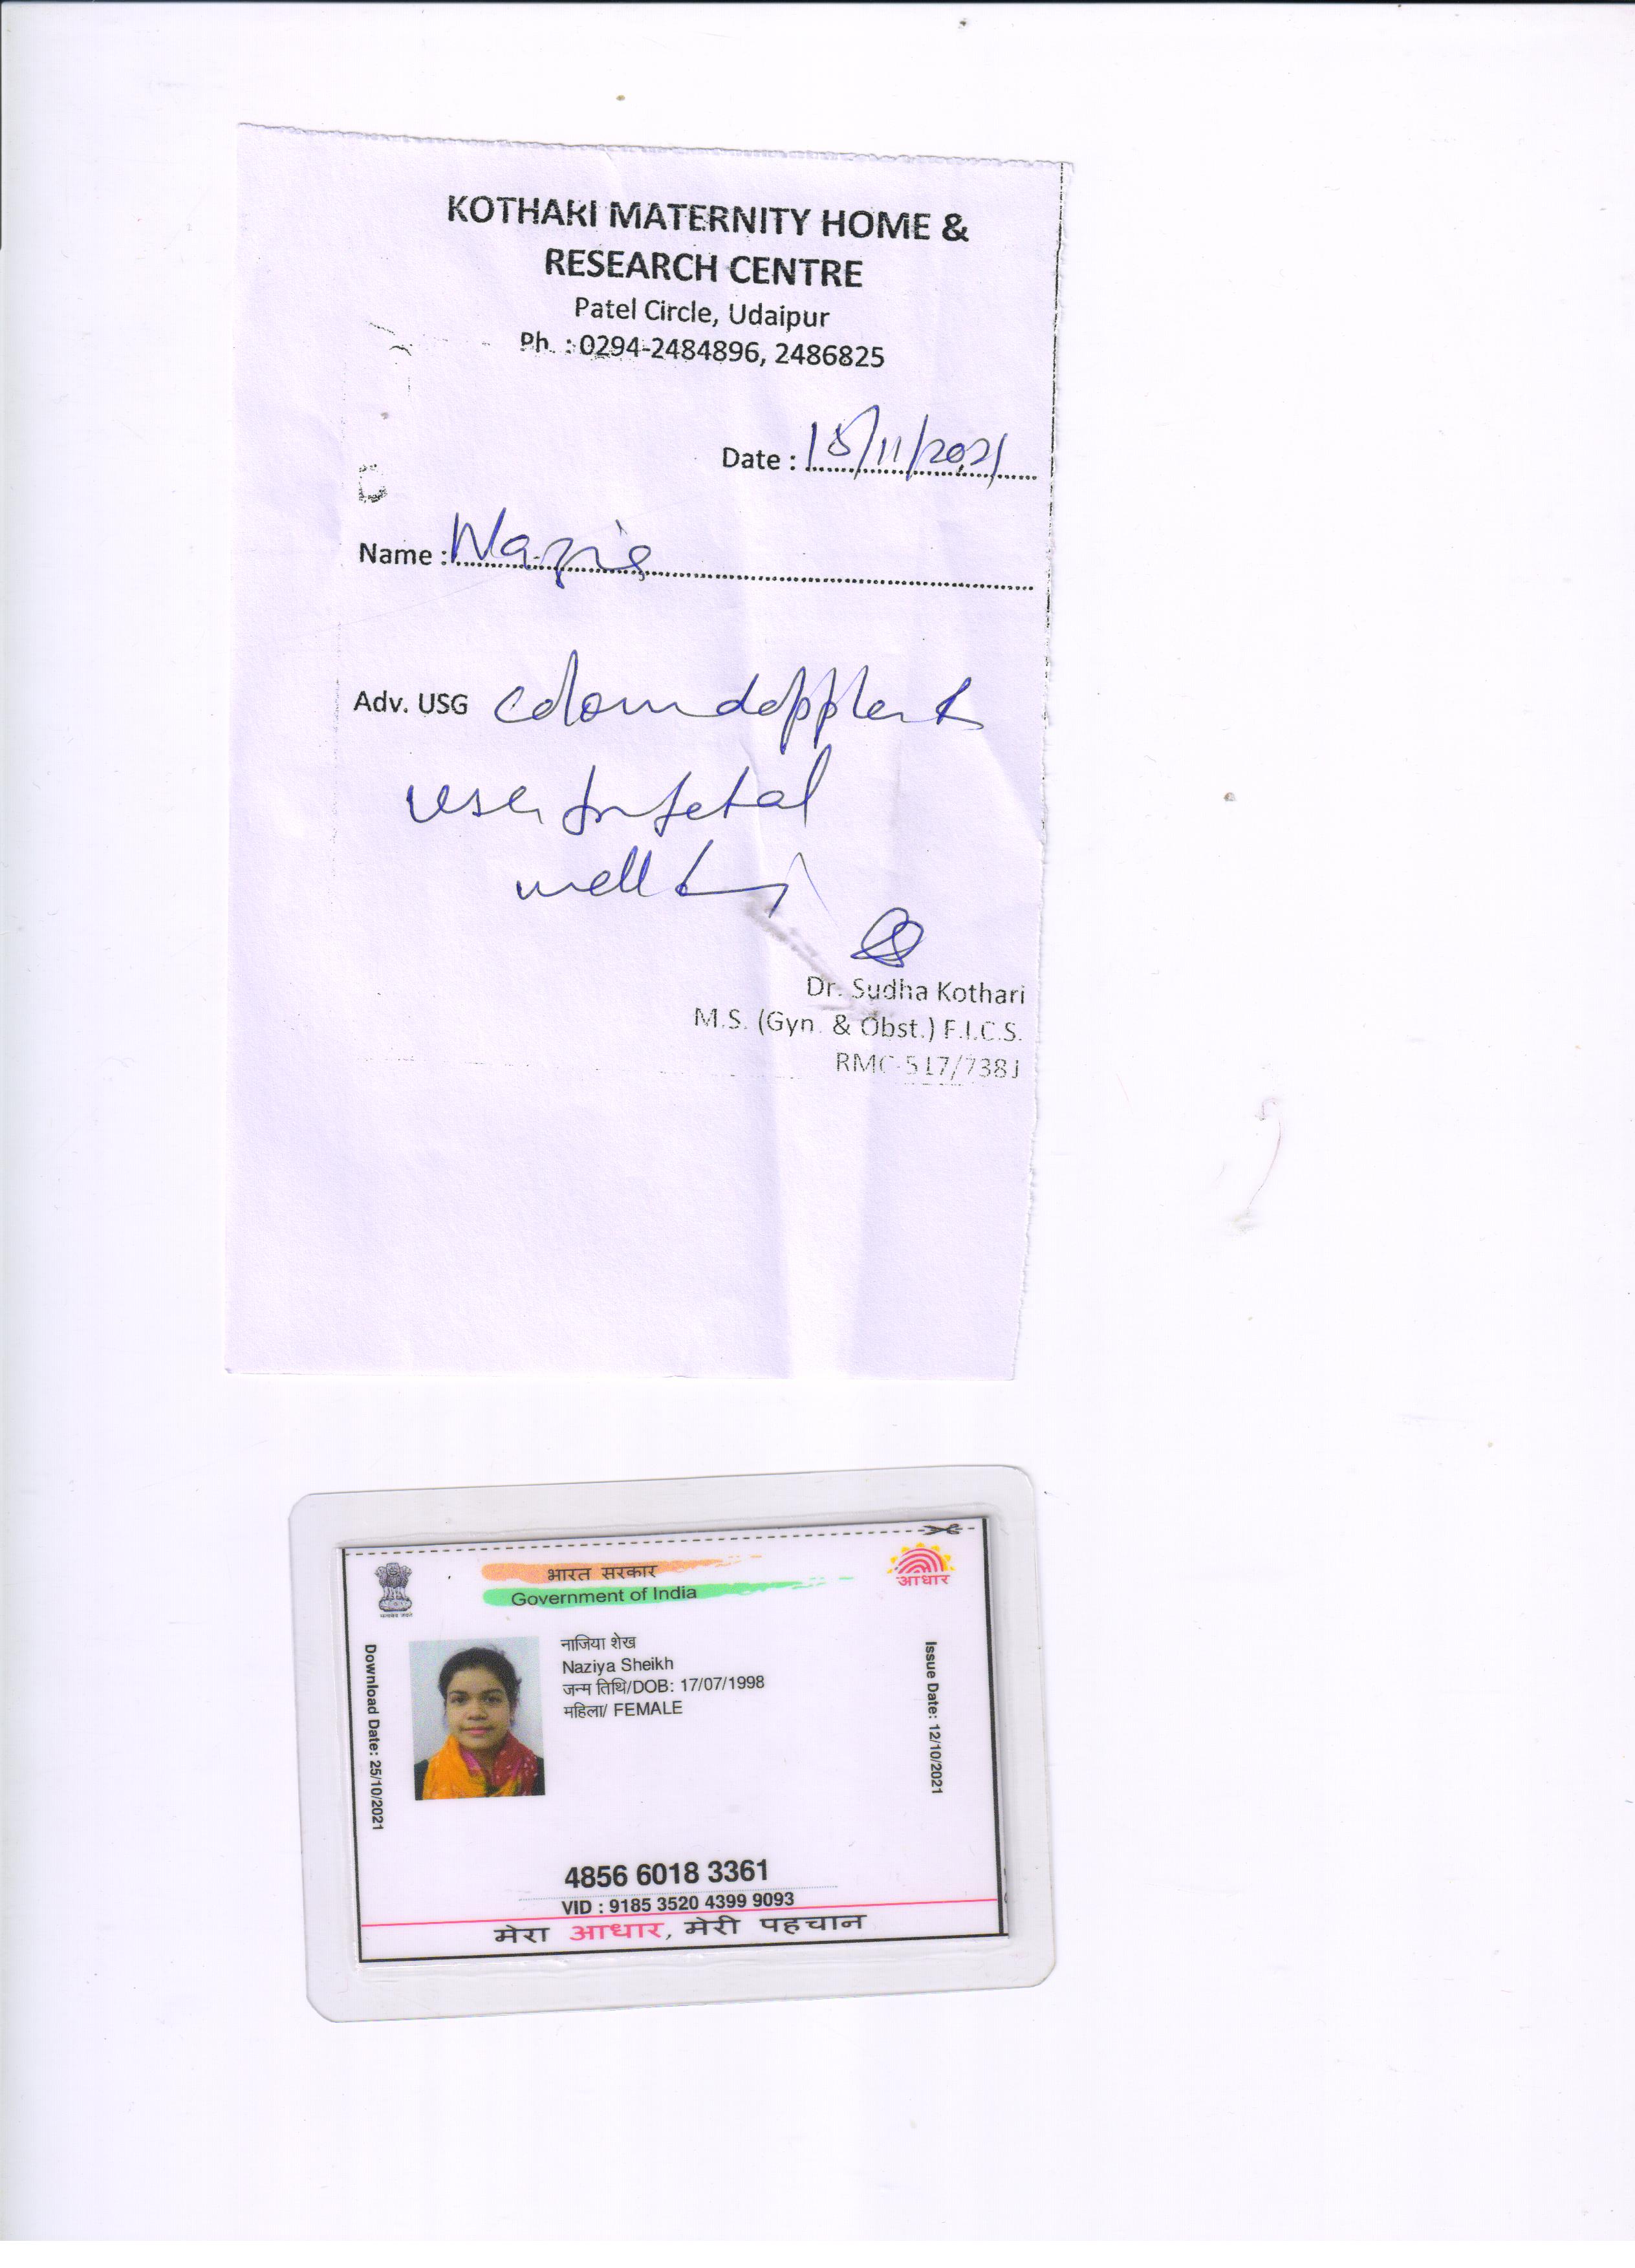 KOTHARI MATERNITY HOME &
RESEARCH CENTRE
Patel Circle, Udaipur
Ph. : 0294-2484896, 2486825
Date : 18/11/2021
Name :
Adv. USG colour doppler &
USG for fetal
well
Dr. Sudha Kothari
M.S. (Gyn. & Obst.) F.I.C.S.
RMC-517/7381
भारत सरकार
Government of India
आधार
नाजिया शेख
Naziya Sheikh
जन्म तिथि/DOB: 17/07/1998
महिला/ FEMALE
Download Date: 25/10/2021
Issue Date: 12/10/2021
4856 6018 3361
VID : 9185 3520 4399 9093
मेरा आधार, मेरी पहचान